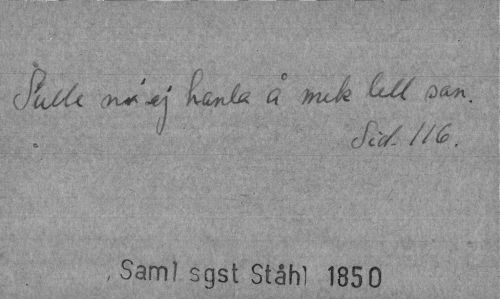 Sulle nı ej hanla å mek lell san.
Sid. 116.
Saml sgst Ståhl 1850